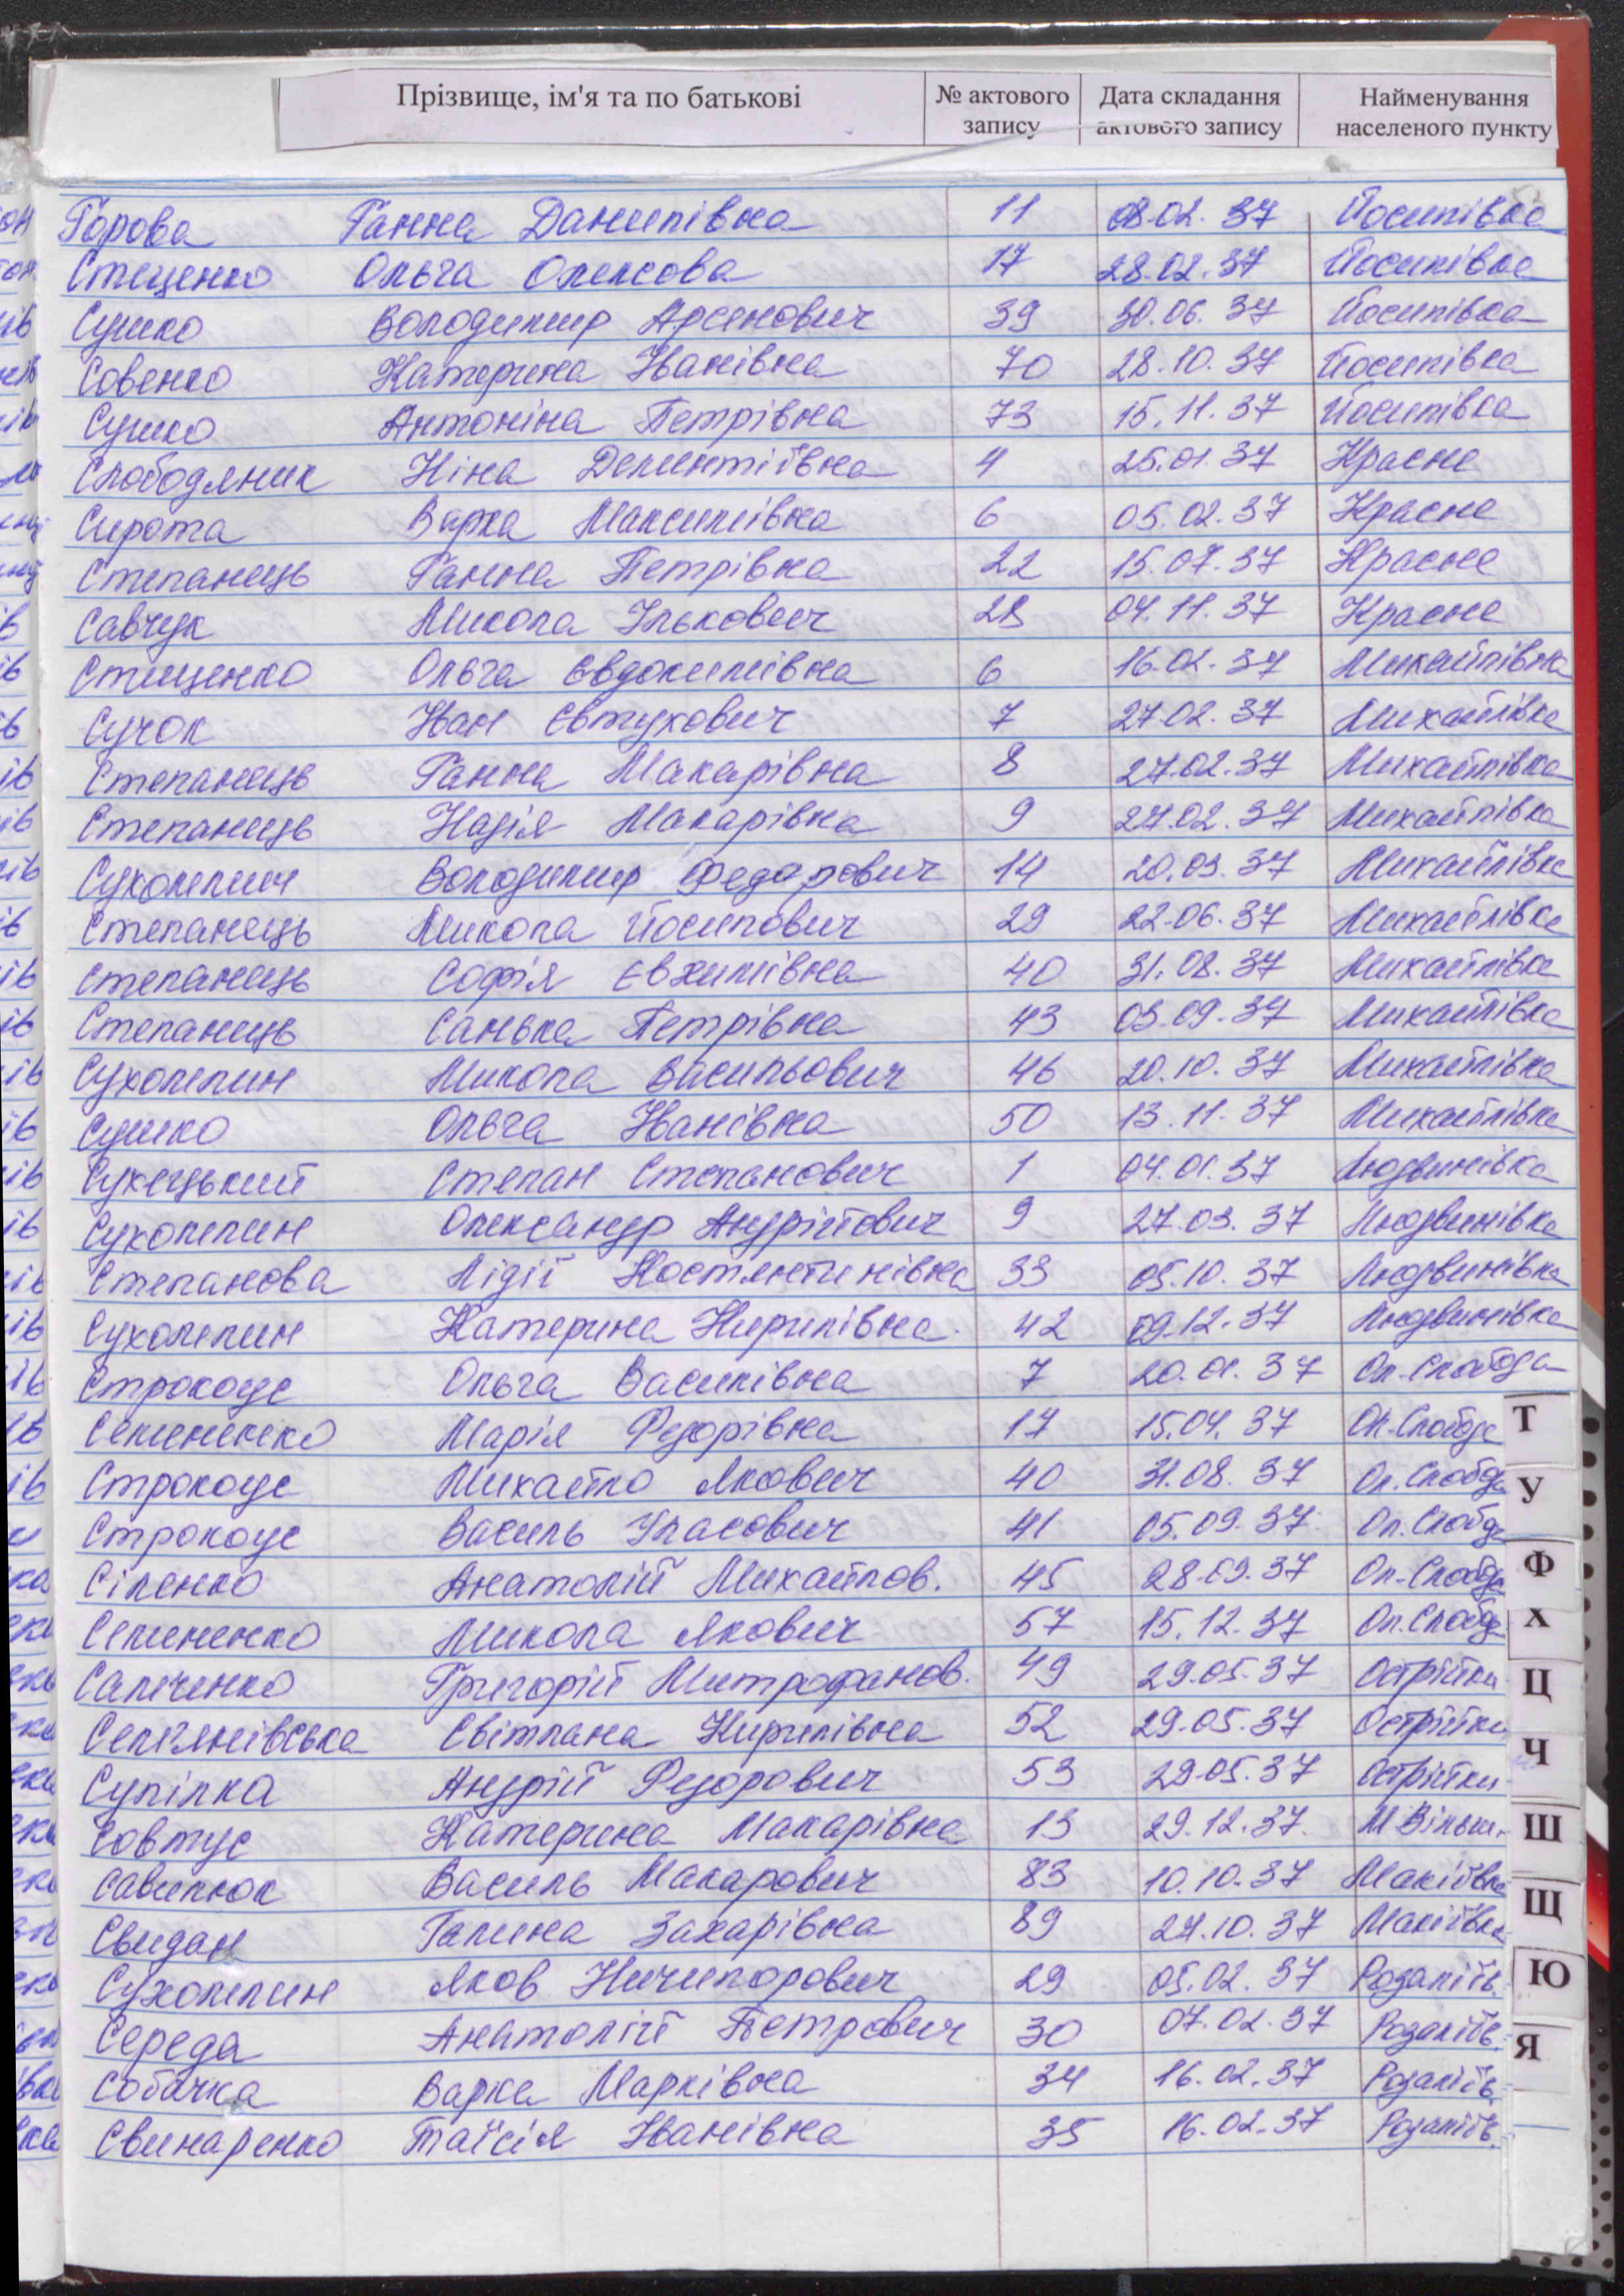 Прізвище, ім'я та по батькові № актового запису Дата складання актового запису Найменування населеного пункту
Горова Ганна Данилівна 11 08.02.37 Йосипівка
Стеценко Ольга Олексова 17 28.02.37 Йосипівка
Сушко Володимир Арсенович 39 30.06.37 Йосипівка
Совенко Катерина Іванівна 70 28.10.37 Йосипівка
Сушко Антоніна Петрівна 73 15.11.37 Йосипівка
Слободяник Ніна Дементіївна 4 25.01.37 Красне
Сирота Варка Максимівна 6 05.02.37 Красне
Степанець Ганна Петрівна 22 15.07.37 Красне
Савчук Микола Ількович 28 04.11.37 Красне
Стищенко Ольга Євдокимівна 6 16.02.37 Михайлівка
Сучок Іван Євтухович 7 27.02.37 Михайлівка
Степанець Ганна Макарівна 8 27.02.37 Михайлівка
Степанець Надія Макарівна 9 27.02.37 Михайлівка
Сухолипин Володимир Федорович 14 20.03.37 Михайлівка
Степанець Микола Йосипович 29 22.06.37 Михайлівка
Степанець Софія Євхимівна 40 31.08.37 Михайлівка
Степанець Санька Петрівна 43 03.09.37 Михайлівка
Сухолипин Микола Васильович 46 20.10.37 Михайлівка
Сушко Ольга Іванівна 50 13.11.37 Михайлівка
Сухецький Степан Степанович 1 04.01.37 Людвинівка
Сухолипин Олександр Андрійович 9 27.03.37 Людвинівка
Степанова Лідії Костянтинівна 33 05.10.37 Людвинівка
Сухолипин Катерина Кирилівна 42 09.12.37 Людвинівка
Строкоус Ольга Василівна 7 20.01.37 Ол.Слобода
Семененко Марія Федорівна 17 15.04.37 Ол.Слобода
Строкоус Михайло Якович 40 31.08.37 Ол.Слобода
Строкоус Василь Уласович 41 05.09.37 Ол.Слобода
Сіленко Анатолій Михайлов. 45 28.09.37 Ол.Слобода
Семененко Микола Якович 57 15.12.37 Ол.Слобода
Саліченко Григорій Митрофанов. 49 29.05.37 Острійки
Сем'янівська Світлана Кирилівна 52 29.05.37 Острійки
Супілка Андрій Федорович 53 29.05.37 Острійки
Совтус Катерина Макарівна 13 29.12.37 М Вільш.
Савилюк Василь Макарович 83 10.10.37 Макіївка
Свидан Галина Захарівна 89 27.10.37 Макіївка
Сухолипин Яков Ничипорович 29 05.02.37 Розаліїв.
Середа Анатолій Петрович 30 07.02.37 Розаліїв.
Собачка Варка Марківна 34 16.02.37 Розаліїв.
Свинаренко Таїсія Іванівна 35 16.02.37 Розаліїв.
Т
У
Ф
Х
Ц
Ч
Ш
Щ
Ю
Я